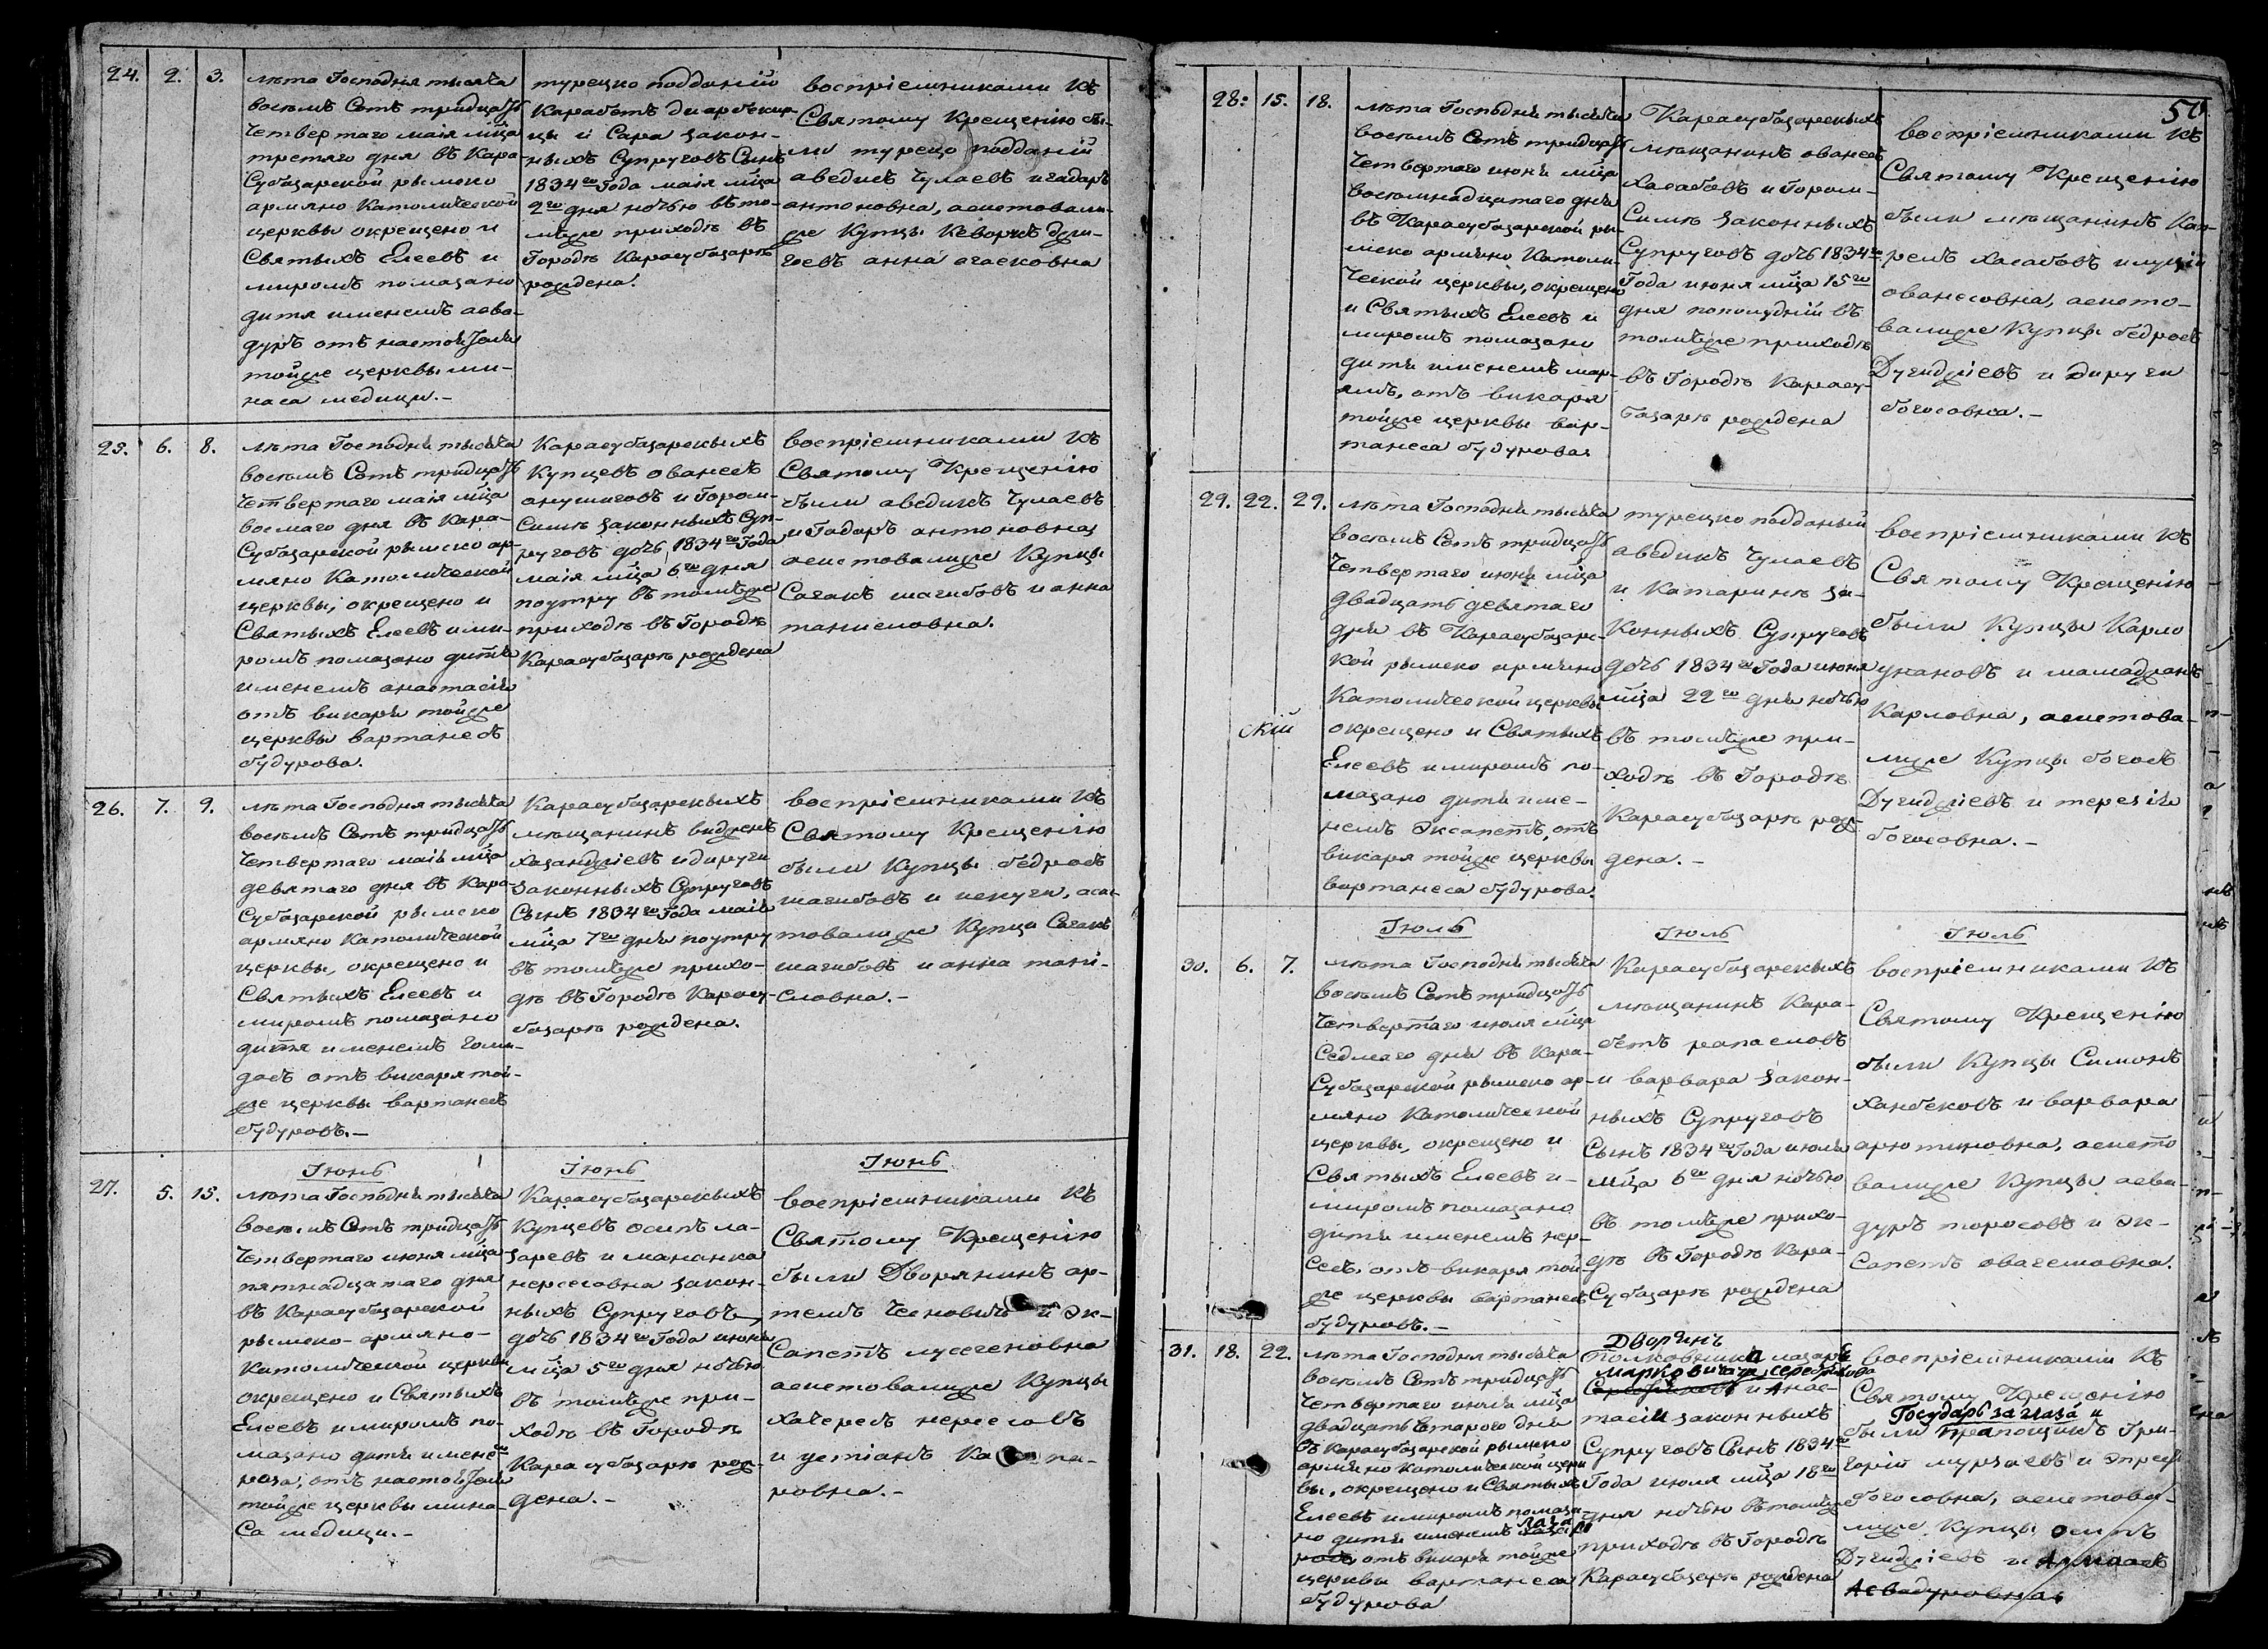 24. 2. 3.
лѣта Господня тысяча
восемь Сотъ тридцать
Четвертаго маія мѣца
третяго дня въ Кара-
Субазарской рымско
армяно Католической
церквы окрещено и
Святыхъ Елеевъ и
миромъ помазано
дитя именемъ асва-
дуръ отъ настоятеля
тойже церквы ми-
наса медици.-
турецко подданій
Карабетъ диарбекир-
цы и Сара закон-
ныхъ Супруговъ Сынъ
1834го Года маія мѣца
2го дня ночью въ то-
мъже приходѣ въ
Городѣ Карасубазарѣ
рождена.
воспріемниками къ
Святому Крещенію бы-
ли турецко подданій
аведикъ Чулаевъ и гадаръ
антоновна, асистовали-
же Купцы Кеворкъ
анна
25. 6. 8.
лѣта Господня тысяча
восемь Сотъ тридцать
Четвертаго маія мѣца
восмаго дня въ Кара-
Субазарской рымско ар-
мяно Католической
церквы, окрещено и
Святыхъ Елеевъ и ми-
ромъ помазано дитя
именемъ анастасія
отъ викаря тойже
церквы вартанесъ
будурова.
Карасубазарскыхъ
Купцевъ ованесъ
анушаговъ и Гором-
Симѣ законныхъ Суп-
руговъ дочь 1834го Года
маія мѣца 6го дня
поутру въ томъже
приходѣ въ Городѣ
Карасубазарѣ рождена
воспріемниками къ
Святому Крещенію
были аведикъ Чулаевъ
и Гадаръ антоновна
асистовалиже Купцы
Сагакъ шагибовъ и анна
танисловна.
26. 7. 9.
лѣта Господня тысяча
восемь Сотъ тридцать
Четвертаго маія мѣца
девятаго дня въ Кара-
Субазарской рымско
армяно Католической
церквы, окрещено и
Святыхъ Елеевъ и
миромъ помазано
дитя именемъ гоми-
дасъ отъ викаря той-
же церквы вартанесъ
будуровъ.-
Карасубазарскыхъ
мещанинъ
хазанджіевъ и дируги
законныхъ Супруговъ
Сынъ 1834го Года маія
мѣца 7го дня поутру
въ томъже прихо-
дѣ въ Городѣ Карасу-
базарѣ рождена.
воспріемниками къ
Святому Крещенію
были Купцы бедросъ
шагибовъ и искуги, асис-
товалиже Купцы Сагакъ
шагибовъ и анна тани-
словна.-
Іюнь Іюнь Іюнь
27. 5. 15.
лѣта Господня тысяча
восемь Сотъ тридцать
Четвертаго июня мѣца
пятнадцатаго дня
въ Карасубазарской
рымско-армяно-
Католической церквы
окрещено и Святыхъ
Елеевъ и миромъ по-
мазано дитя имене
роза, отъ настоятеля
тойже церквы мина-
Са медици.-
Карасубазарскыхъ
Купцевъ осипъ ла-
заревъ и мананка
нерсесовна закон-
ныхъ Супруговъ
дочь 1834го Года июня
мѣца 5го дня ночью
въ томъже при-
ходѣ въ Городѣ
Карасубазарѣ рож-
дена.-
воспріемниками къ
Святому Крещенію
были Дворянинъ ар-
темъ Чесновичь и эк-
Сапетъ мусегеновна
асистовалиже Купцы
хачересъ нерсесовъ
и устіанъ
ровна.-
50
28. 15. 18.
лѣта Господня тысяча
восемь Сотъ тридцать
Четвертаго июня мѣца
восемнадцатаго дня
въ Карасубазарской ры-
мско армяно Католи-
ческой церквы, окрещено
и Святыхъ Елеевъ и
миромъ помазано
дитя именемъ мар-
ямъ, отъ викаря
тойже церквы вар-
танеса будурова
Карасубазарскыхъ
мещанинъ ованесъ
хасабовъ и Гором-
Симѣ законныхъ
Супруговъ дочь 1834го
Года июня мѣца 15го
дня пополудній въ
томъже приходѣ
въ Городѣ Карасу-
базарѣ рождена
воспріемниками къ
Святому Крещенію
были мещанинъ Кап-
релъ хасабовъ и
ованесовна, асисто-
валиже Купцы бедросъ
Дугиджіевъ и дируги
богосовна.-
29. 22. 29.
лѣта Господня тысяча
восемь Сотъ тридцать
Четвертаго июня мѣца
двадцать девятаго
дня въ Карасубазарс-
кой рымско армяно
Католической церквы
окрещено и Святыхъ
Елеевъ и миромъ по-
мазано дитя име-
немъ эксапетъ, отъ
викаря тойже церквы
вартанеса будурова.
скій
турецко подданый
аведикъ Чулаевъ
и Катаринѣ за-
Конныхъ Супруговъ
дочь 1834го Года июня
мѣца 22го дня ночью
въ томъже при-
ходѣ въ Городѣ
Карасубазарѣ рож-
дена.-
воспріемниками къ
Святому Крещенію
были Купцы Карло
унановъ и
Карловна, асистова-
лиже Купцы богосъ
Дугиджіевъ и терезія
богосовна.-
Іюль Іюль Іюль
30. 6. 7.
лѣта Господня тысяча
восемь Сотъ тридцать
Четвертаго июля мѣца
Седмаго дня въ Кара-
Субазарской рымско ар-
мяно Католической
церквы, окрещено и
Святыхъ Елеевъ и
миромъ помазано
дитя именемъ нер-
сесъ, отъ викаря той-
же церквы вартанесъ
будуровъ.-
Карасубазарскыхъ
мещанинъ Кара-
бетъ рапаеловъ
и варвара закон-
ныхъ Супруговъ
Сынъ 1834го Года июля
мѣца 6го дня ночью
въ томъже прихо-
дѣ въ Городѣ Кара-
Субазарѣ рождена
воспріемниками къ
Святому Крещенію
были Купцы Симонъ
ханбековъ и варвара
арютиновна, асисто
валиже Купцы асва-
дуръ торосовъ и эк-
Сапетъ овагемовна.
31. 18. 22.
лѣта Господня тысяча
восемь Сотъ тридцать
Четвертаго июля мѣца
двадцать Втарого дня
въ Карасубазарской рымско
армяно католической церк
вы, окрещено и Святыхъ
Елеевъ и миромъ помаза-
но дитя именемъ Лаза
отъ викаря тойже
церквы вартанеса
будурова
Дворянъ
полковника лазаръ
марковича серебрякова
и Анас-
тасіи законныхъ
Супруговъ Сынъ 1834го
Года июля мѣца 18го
дня ночью въ томъже
приходѣ въ Городѣ
Карасубазарѣ рождена
воспріемниками къ
Святому Крещенію
Государь за глаза и
были прапощикъ Гри-
горій мурзаевъ и
богосовна, асистова-
лиже Купцы осипъ
Дугиджіевъ и Алмастъ
Асвадуровна